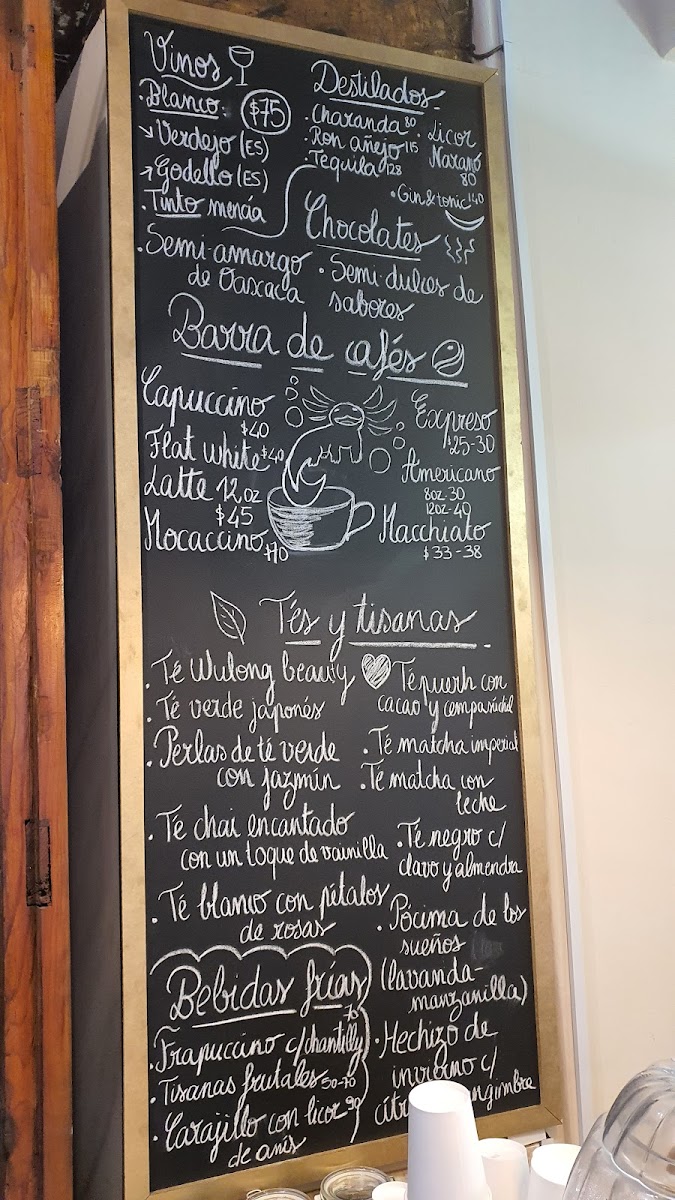 Vinos
Blanco $75
Verdejo (ES)
Godello (ES)
Tinto mencía
Destilados
Charanda 80
Ron añejo 115
Tequila 128
Licor
Naranjo
80
Gin & tonic 140
Chocolates
Semi-amargo
de Oaxaca
Semi-dulces de
sabores
Barra de cafés
Capuccino
$40
Flat white $40
Latte 12oz
$45
Mocaccino
Expreso
$25-30
Americano
8oz-30
12oz-40
Macchiato
$33-38
Tés y tisanas
Té Wulong beauty
Té verde japonés
Perlas de té verde
con jazmín
Té chai encantado
con un toque de vainilla
Té blanco con pétalos
de rosas
Té puerh con
cacao y cempasúchil
Té matcha imperial
Té matcha con
leche
Té negro c/
clavo y almendra
Pócima de los
sueños
(lavanda-
manzanilla)
Hechizo de
invierno c/
Bebidas frías
Frapuccino c/chantilly 70
Tisanas frutales 50-70
Carajillo con licor 90
de anís